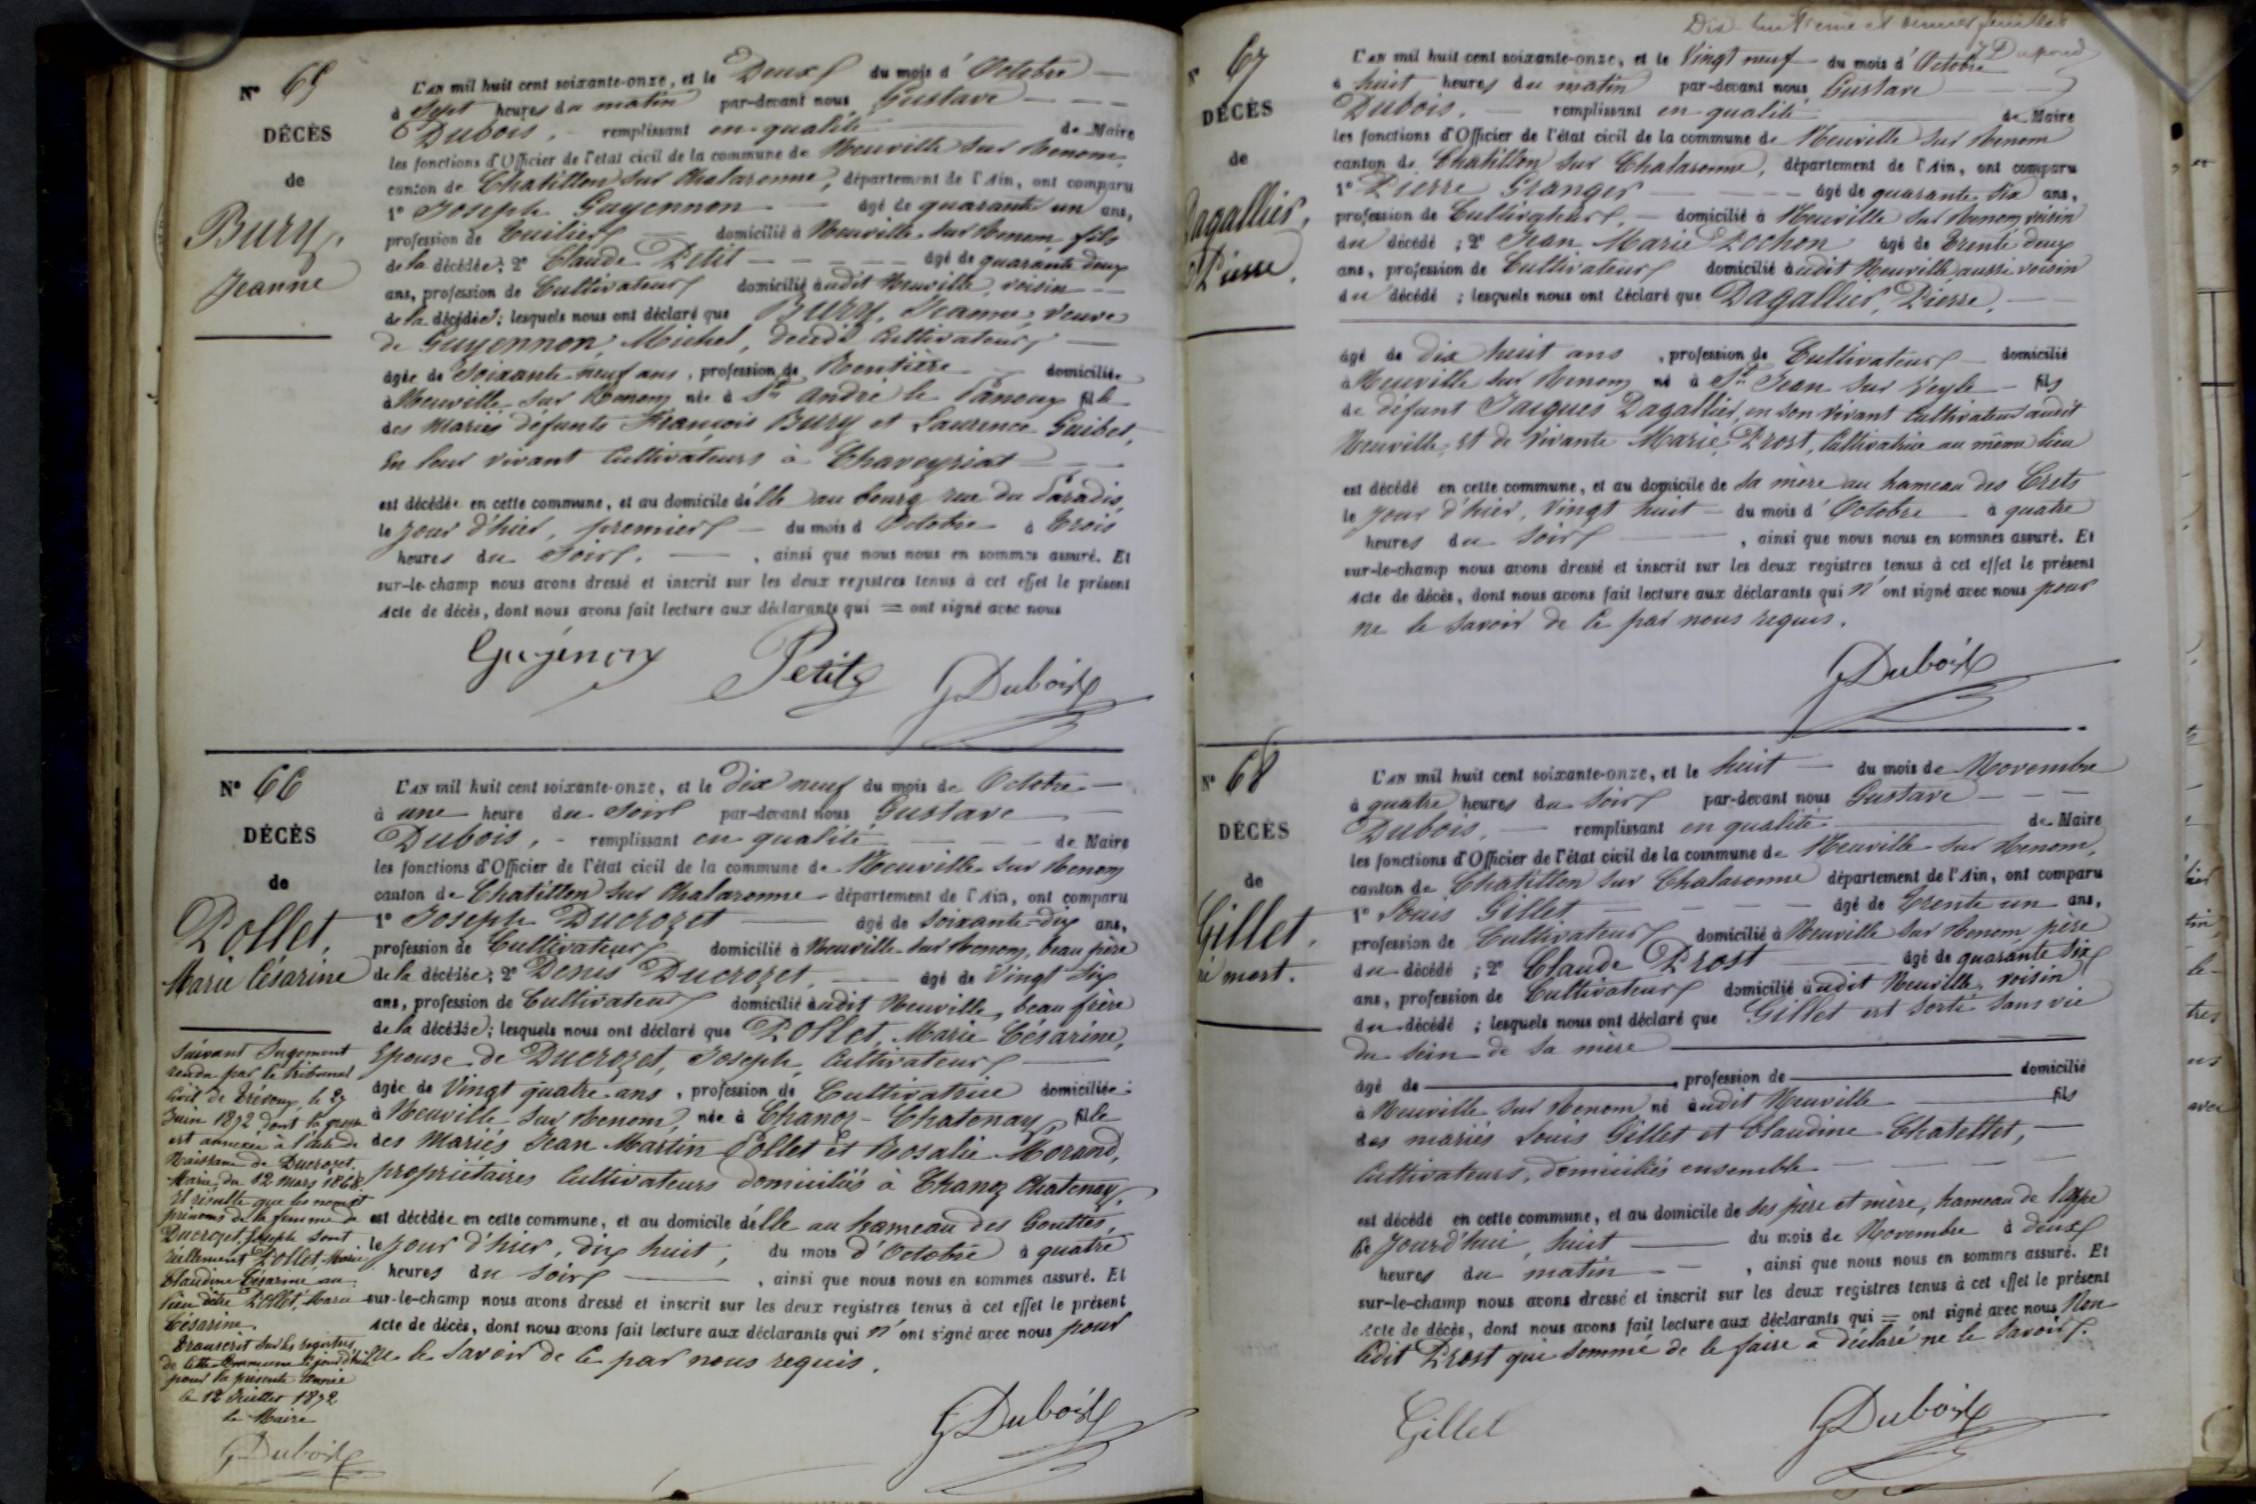 N° 65
DÉCÈS
de
Bury,
Jeanne
L'AN mil huit cent soixante-onze, et le Deux du mois d'Octobre
à Sept heures du matin par-devant nous Gustave
Dubois, remplissant en qualité de Maire
les fonctions d'Officier de l'état civil de la commune de Neuville sur Renom,
canton de Chatillon sur Chalaronne, département de l'Ain, ont comparu
1° Joseph Guyennon âgé de quarante un ans,
profession de Tuilier domicilié à Neuville sur Renom fils
de la décédée; 2° Claude Petit âgé de quarante deux
ans, profession de Cultivateur domicilié audit Neuville, voisin
de la décédée; lesquels nous ont déclaré que Bury, Jeanne, veuve
de Guyennon, Michel, décédé Cultivateur
âgée de Soixante neuf ans, profession de Rentière domiciliée
à Neuville sur Renom née à St André le Panoux fille
des mariés défunts François Bury et Laurence Guibet,
en leur vivant Cultivateurs à Chaveyriat
est décédée en cette commune, et au domicile d'elle au bourg rue du Paradis,
le jour d'hier, premier du mois d'Octobre à trois
heures du soir, ainsi que nous nous en sommes assuré. Et
sur-le-champ nous avons dressé et inscrit sur les deux registres tenus à cet effet le présent
Acte de décès, dont nous avons fait lecture aux déclarants qui = ont signé avec nous
Guyennon Petit G Dubois
N° 66
DÉCÈS
de
Pollet,
Marie Césarine
L'AN mil huit cent soixante-onze, et le dix neuf du mois de Octobre
à une heure du soir par-devant nous Gustave
Dubois, remplissant en qualité de Maire
les fonctions d'Officier de l'état civil de la commune de Neuville sur Renom
canton de Chatillon sur Chalaronne département de l'Ain, ont comparu
1° Joseph Ducrozet âgé de soixante-dix ans,
profession de Cultivateur domicilié à Neuville sur Renom, beau père
de la décédée; 2° Denis Ducrozet, âgé de Vingt Six
ans, profession de Cultivateur domicilié audit Neuville, beau frère
de la décédée; lesquels nous ont déclaré que Pollet, Marie Césarine,
Epouse de Ducrozet, Joseph, Cultivateur
âgée de Vingt quatre ans, profession de Cultivatrice domiciliée
à Neuville sur Renom, née à Chanoz-Chatenay, fille
des Mariés Jean Martin Pollet et Rosalie Morand,
propriétaires Cultivateurs domiciliés à Chanoz Chatenay,
est décédée en cette commune, et au domicile d'elle au hameau des Gouttes,
le jour d'hier, dix huit, du mois d'Octobre à quatre
heures du soir, ainsi que nous nous en sommes assuré. Et
sur-le-champ nous avons dressé et inscrit sur les deux registres tenus à cet effet le présent
Acte de décès, dont nous avons fait lecture aux déclarants qui n'ont signé avec nous pour
ne le savoir de ce par nous requis.
G Dubois
Suivant Jugement
rendu par le tribunal
Civil de Trévoux, le 27
Juin 1872 dont la grosse
est annexée à l'acte de
Naissance de Ducrozet,
Marie, du 12 mars 1868.
Il résulte que les noms et
prénoms de la femme de
Ducrozet, Joseph sont
réellement Pollet, Marie
Claudine Césarine au
lieu d'être Pollet, Marie
Césarine.
Transcrit sur les registres
de cette Commune ce jourd'hui
pour la présente année
le 12 Juillet 1872
Le Maire
G Dubois
Dix huitième et dernier feuillet
N° 67
DÉCÈS
de
Dagallier,
Pierre.
L'AN mil huit cent soixante-onze, et le Vingt neuf du mois d'Octobre
à huit heures du matin par-devant nous Gustave
Dubois, remplissant en qualité de Maire
les fonctions d'Officier de l'état civil de la commune de Neuville sur Renom
canton de Chatillon sur Chalaronne, département de l'Ain, ont comparu
1° Pierre Granger âgé de quarante six ans,
profession de Cultivateur, domicilié à Neuville sur Renom voisin
du décédé; 2° Jean Marie Pochon âgé de Trente deux
ans, profession de Cultivateur domicilié audit Neuville aussi voisin
du décédé; lesquels nous ont déclaré que Dagallier, Pierre,
âgé de dix huit ans, profession de Cultivateur domicilié
à Neuville sur Renom né à St Jean sur Veyle fils
de défunt Jacques Dagallier, en son vivant Cultivateur audit
Neuville, et de vivante Marie Prost, Cultivatrice au même lieu
est décédé en cette commune, et au domicile de sa mère au hameau des Crets
le jour d'hier, vingt huit du mois d'Octobre à quatre
heures du soir, ainsi que nous nous en sommes assuré. Et
sur-le-champ nous avons dressé et inscrit sur les deux registres tenus à cet effet le présent
Acte de décès, dont nous avons fait lecture aux déclarants qui n'ont signé avec nous pour
ne le savoir de ce par nous requis.
G Dubois
N° 68
DÉCÈS
de
Gillet,
né mort.
L'AN mil huit cent soixante-onze, et le huit du mois de Novembre
à quatre heures du soir par-devant nous Gustave
Dubois, remplissant en qualité de Maire
les fonctions d'Officier de l'état civil de la commune de Neuville sur Renom,
canton de Chatillon sur Chalaronne département de l'Ain, ont comparu
1° Louis Gillet âgé de Trente un ans,
profession de Cultivateur domicilié à Neuville sur Renom père
du décédé; 2° Claude Prost âgé de quarante six
ans, profession de Cultivateur domicilié audit Neuville, voisin
du décédé; lesquels nous ont déclaré que Gillet est sorti sans vie
du sein de sa mère
âgé de, profession de domicilié
à Neuville sur Renom né audit Neuville fils
des mariés Louis Gillet et Claudine Chatellet,
Cultivateurs, domiciliés ensemble
est décédé en cette commune, et au domicile de ses père et mère, hameau de
ce Jourd'hui, huit du mois de Novembre à deux
heures du matin, ainsi que nous nous en sommes assuré. Et
sur-le-champ nous avons dressé et inscrit sur les deux registres tenus à cet effet le présent
Acte de décès, dont nous avons fait lecture aux déclarants qui = ont signé avec nous Non
ledit Prost qui sommé de le faire a déclaré ne le savoir.
Gillet G Dubois